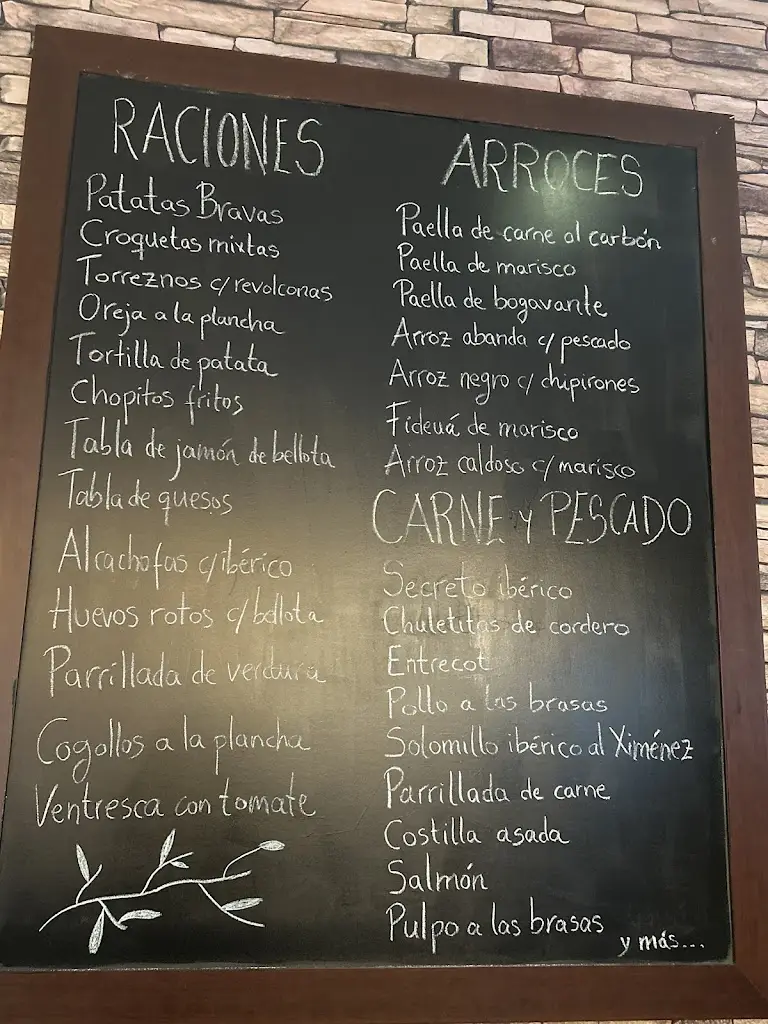 RACIONES
Patatas Bravas
Croquetas mixtas
Torreznos c/revolconas
Oreja a la plancha
Tortilla de patata
Chopitos fritos
Tabla de jamón de bellota
Tabla de quesos
Alcachofas c/ibérico
Huevos rotos c/bellota
Parrillada de verdura
Cogollos a la plancha
Ventresca con tomate
ARROCES
Paella de carne al carbón
Paella de marisco
Paella de bogavante
Arroz abanda c/pescado
Arroz negro c/chipirones
Fideuá de marisco
Arroz caldoso c/marisco
CARNE y PESCADO
Secreto ibérico
Chuletitas de cordero
Entrecot
Pollo a las brasas
Solomillo ibérico al Ximénez
Parrillada de carne
Costilla asada
Salmón
Pulpo a las brasas
y más...